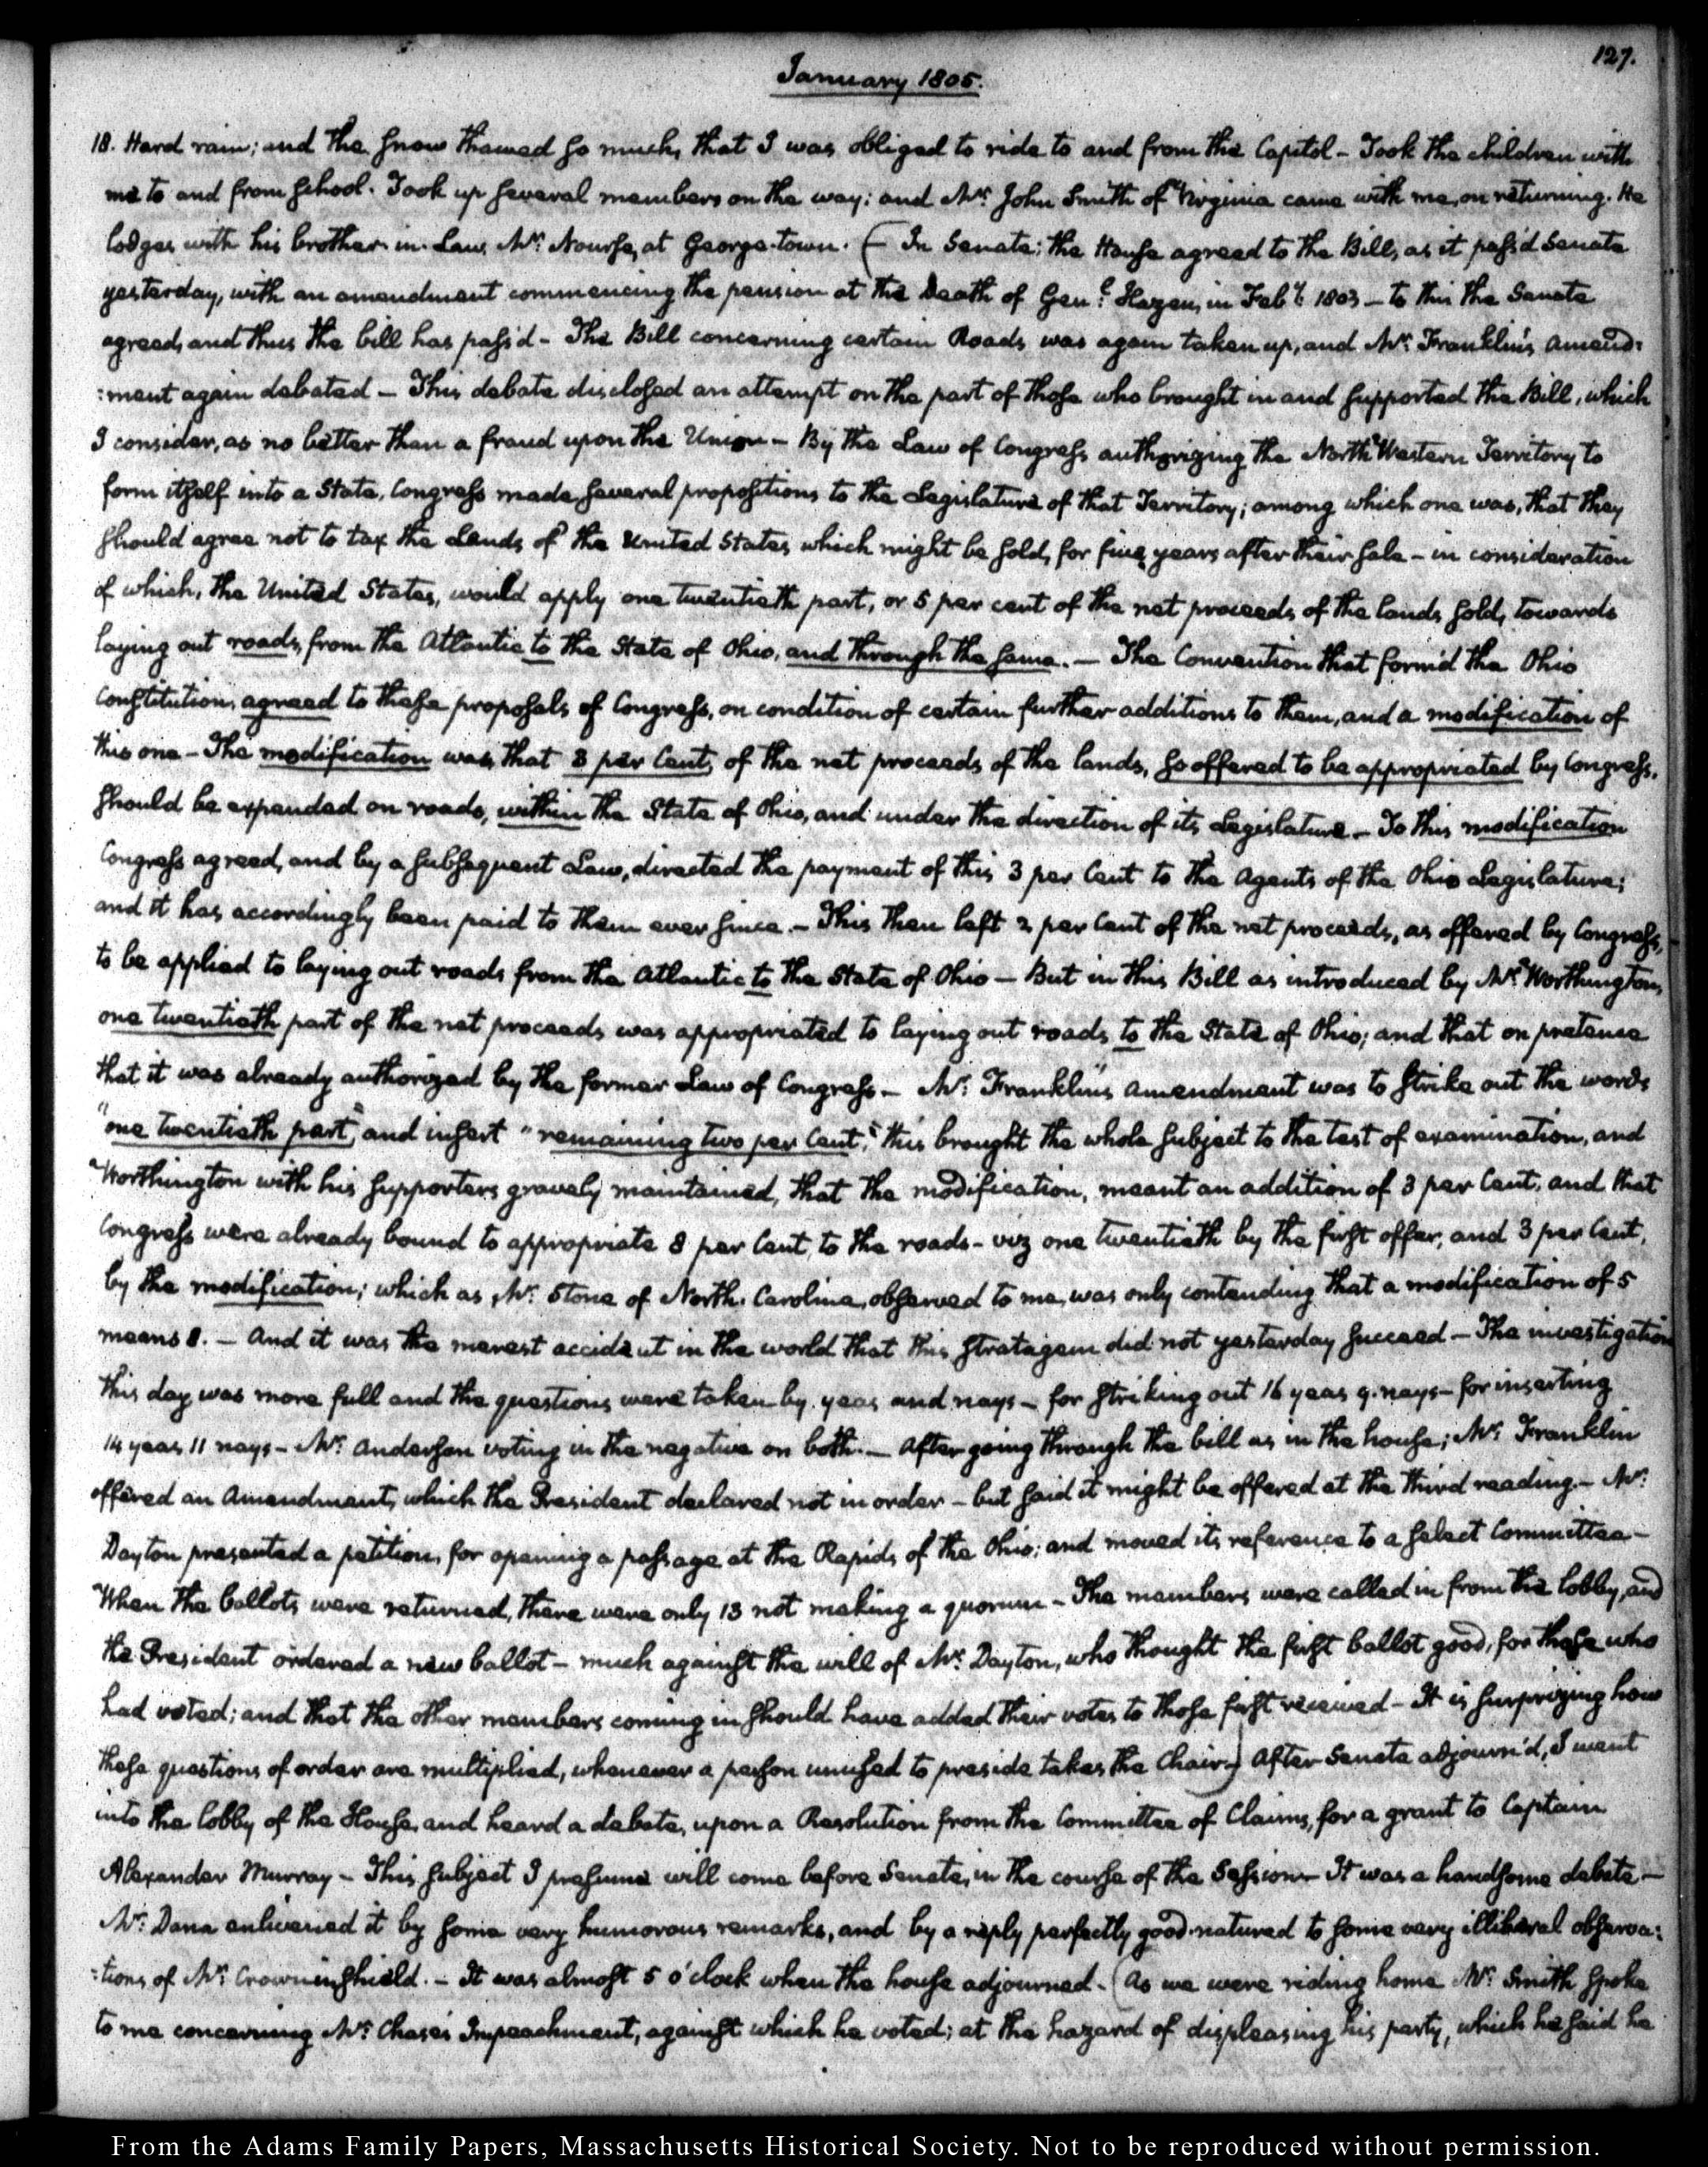 127.
January 1805.
18. Hard rain; and the snow thawed so much, that I was obliged to ride to and from the Capitol – Took the children with
me to and from school. Took up several members on the way: and Mr. John Smith of Virginia came with me, on returning. He
lodges with his brother-in-Law, Mr. Nourse, at George-town. (– In Senate; the House agreed to the Bill, as it pass'd Senate
yesterday, with an amendment commencing the pension at the Death of Genl. Hazen, in Feby. 1803 – to this the Senate
agreed, and thus the bill has pass'd – The Bill concerning certain Roads was again taken up, and Mr. Franklin's amend:
:ment again debated – This debate disclosed an attempt on the part of those who brought in and supported the Bill, which
I consider, as no better than a fraud upon the Union – By the Law of Congress authorizing the North-Western Territory to
form itself into a State, Congress made several propositions to the Legislature of that Territory; among which one was, that they
should agree not to tax the Lands of the United States, which might be sold, for five years after their sale – in consideration
of which, the United States, would apply one twentieth part, or 5 per cent of the net proceeds of the lands sold, towards
laying out roads, from the Atlantic to the State of Ohio, and through the same. – The Convention that form'd the Ohio
Constitution, agreed to these proposals of Congress, on condition of certain further additions to them, and a modification of
this one – The modification was, that 3 per Cent, of the net proceeds of the lands, so offered to be appropriated by Congress,
should be expended on roads, within the State of Ohio, and under the direction of its Legislature – To this modification
Congress agreed, and by a subsequent Law, directed the payment of this 3 per Cent to the Agents of the Ohio Legislature;
and it has accordingly been paid to them ever since. – This then left 2 per Cent of the net proceeds, as offered by Congress,
to be applied to laying out roads from the Atlantic to the State of Ohio – But in this Bill as introduced by Mr. Worthington,
one twentieth part of the net proceeds was appropriated to laying out roads to the State of Ohio; and that on pretence
that it was already authorized by the former Law of Congress – Mr. Franklin's amendment was to strike out the words
"one twentieth part" and insert "remaining two per Cent," this brought the whole subject to the test of examination, and
Worthington with his supporters gravely maintained, that the modification, meant an addition of 3 per Cent, and that
Congress were already bound to appropriate 8 per Cent, to the roads – viz one twentieth by the first offer, and 3 per Cent,
by the modification; which as, Mr. Stone of North-Carolina, observed to me, was only contending that a modification of 5
means 8. – And it was the merest accident in the world that this stratagem did not yesterday succeed – The investigation
this day was more full and the questions were taken by yeas and nays – for striking out 16 yeas 9. nays – for inserting
14 yeas, 11 nays – Mr. Anderson voting in the negative on both. – After going through the bill as in the house; Mr. Franklin
offered an Amendment, which the President declared not in order – but said it might be offered at the third reading. – Mr.
Dayton presented a petition, for opening a passage at the Rapids of the Ohio; and moved its reference to a select Committee –
When the ballots were returned, there were only 13 not making a quorum – The members were called in from the lobby, and
the President ordered a new ballot – much against the will of Mr. Dayton, who thought the first ballot good, for those who
had voted; and that the other members coming in should have added their votes to those first received – It is surprizing how
these questions of order are multiplied, whenever a person unused to preside takes the Chair –) After Senate adjourn'd, I went
into the lobby of the House, and heard a debate, upon a Resolution from the Committee of Claims, for a grant to Captain
Alexander Murray – This subject I presume will come before Senate, in the course of the Session – It was a handsome debate –
Mr. Dana enlivened it by some very humorous remarks, and by a reply perfectly good-natured to some very illiberal observa:
:tions of Mr. Crowninshield. – It was almost 5 o'clock when the house adjourned. (As we were riding home Mr. Smith spoke
to me concerning Mr. Chase's Impeachment, against which he voted; at the hazard of displeasing his party, which he said he
From the Adams Family Papers, Massachusetts Historical Society. Not to be reproduced without permission.